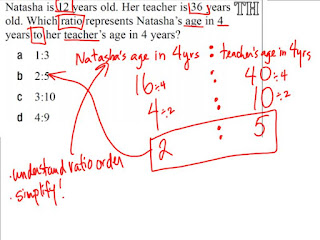 Natasha is 12 years old. Her teacher is 36 years
old. Which ratio represents Natasha's age in 4
years to her teacher's age in 4 years?
TH
a 1:3
b 2:5
c 3:10
d 4:9
Natasha's age in 4yrs : teacher's age in 4yrs
16 ÷4 : 40 ÷4
4 ÷2 : 10 ÷2
2 : 5
• understand ratio order
• simplify!